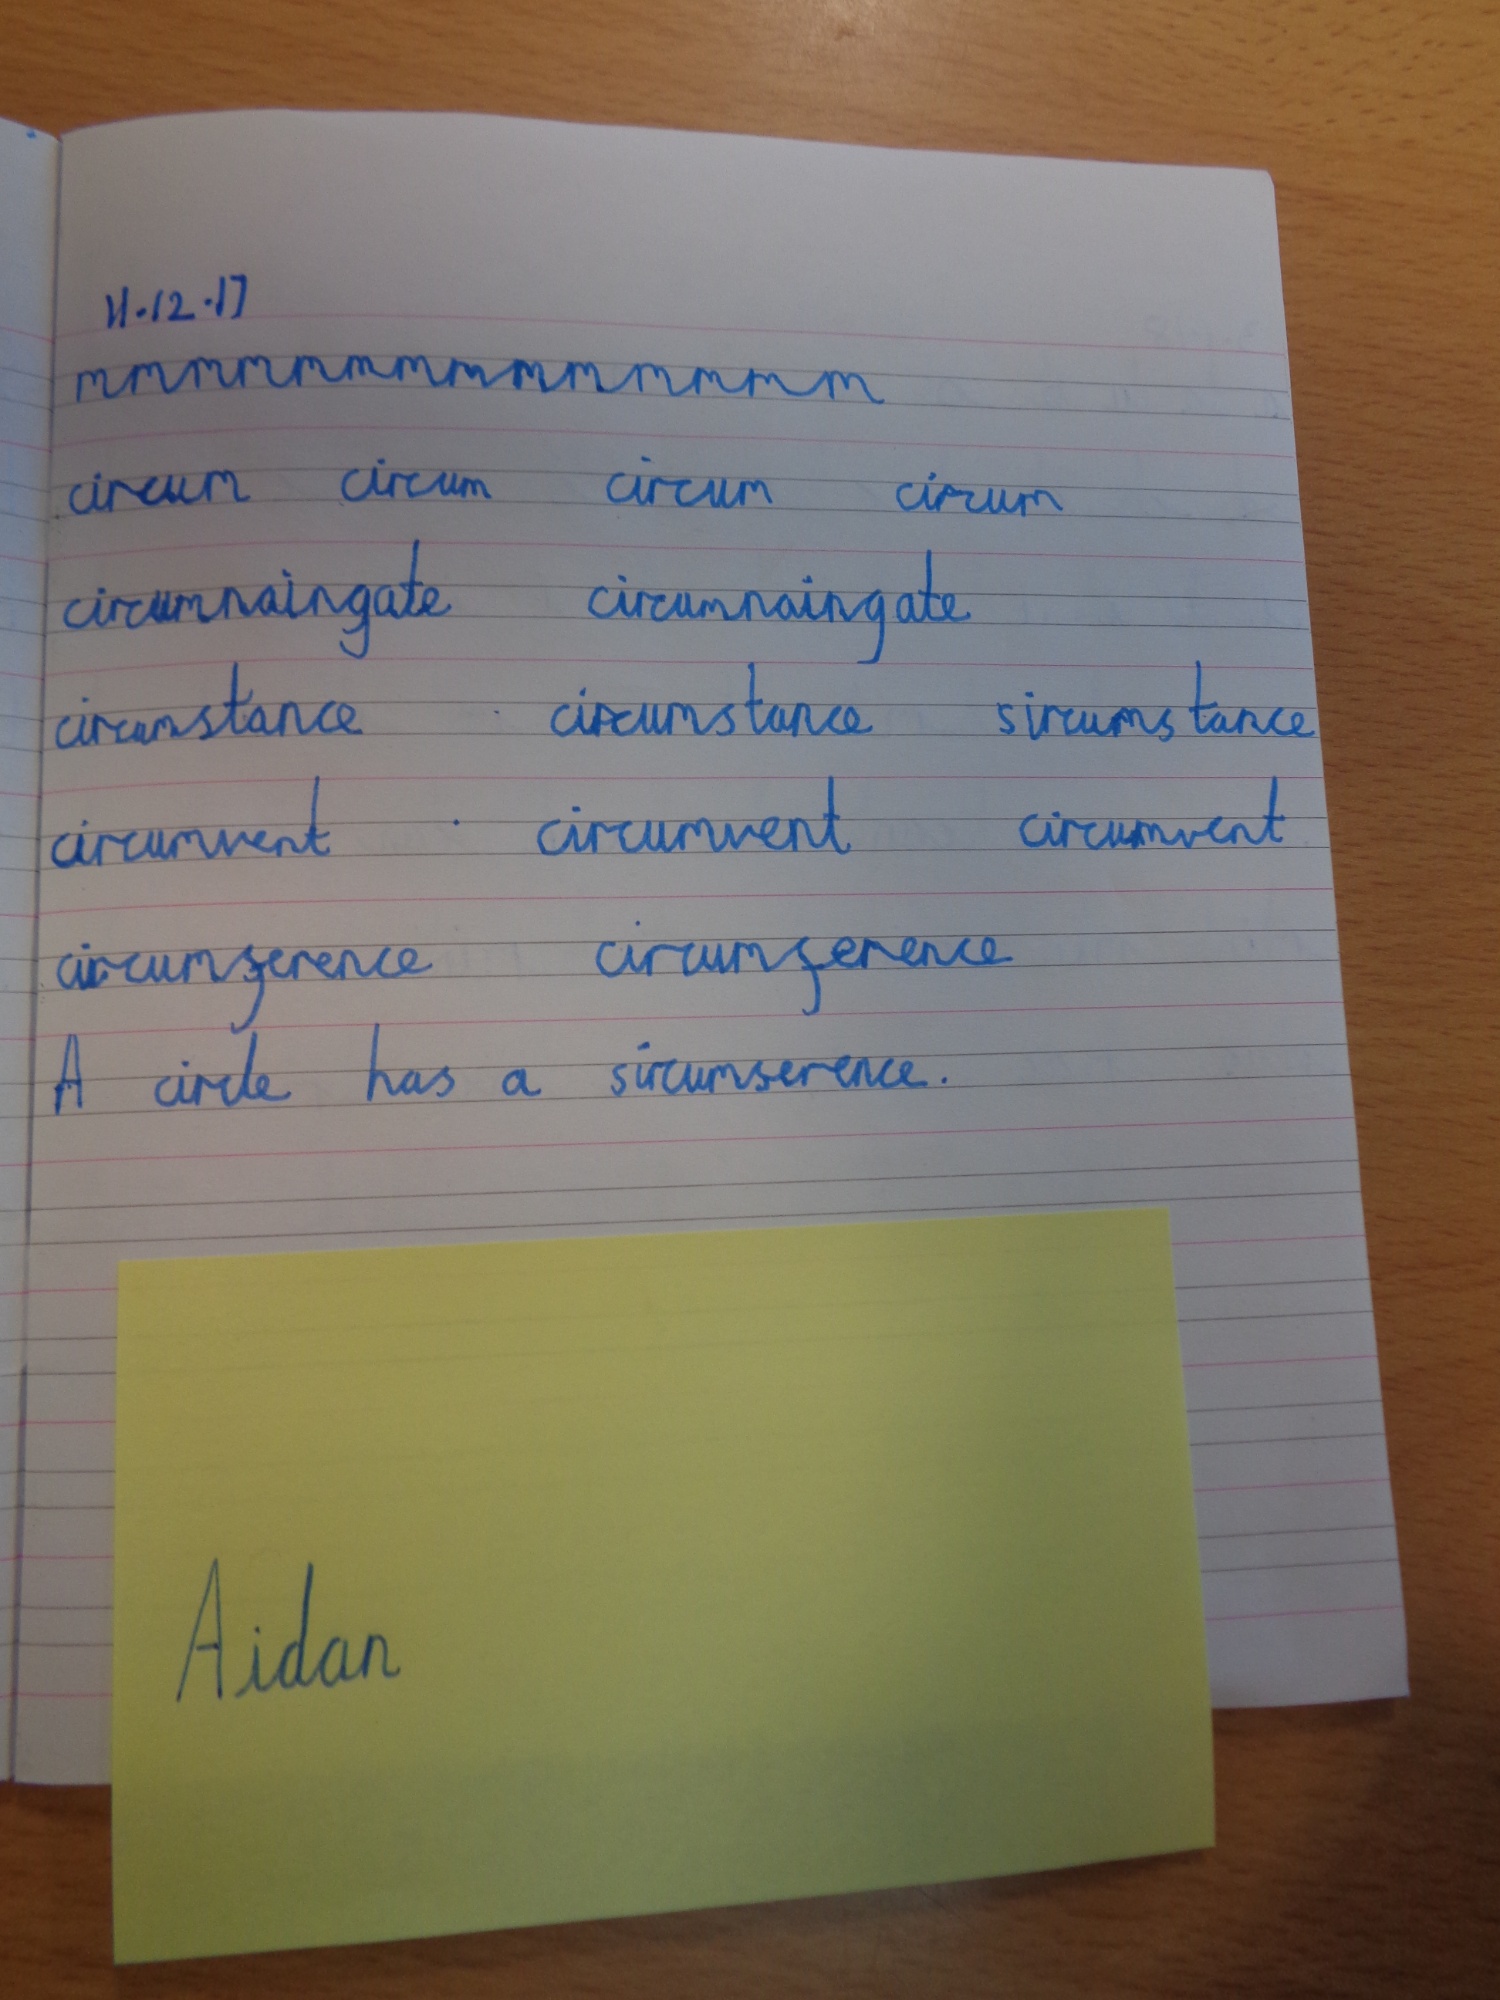 11.12.17
mmmmmmmmmmmmmm
circum circum circum circum
circumnaingate circumnaingate
circumstance circumstance sircumstance
circumvent circumvent circumvent
circumference circumference
A circle has a sircumserence.
Aidan